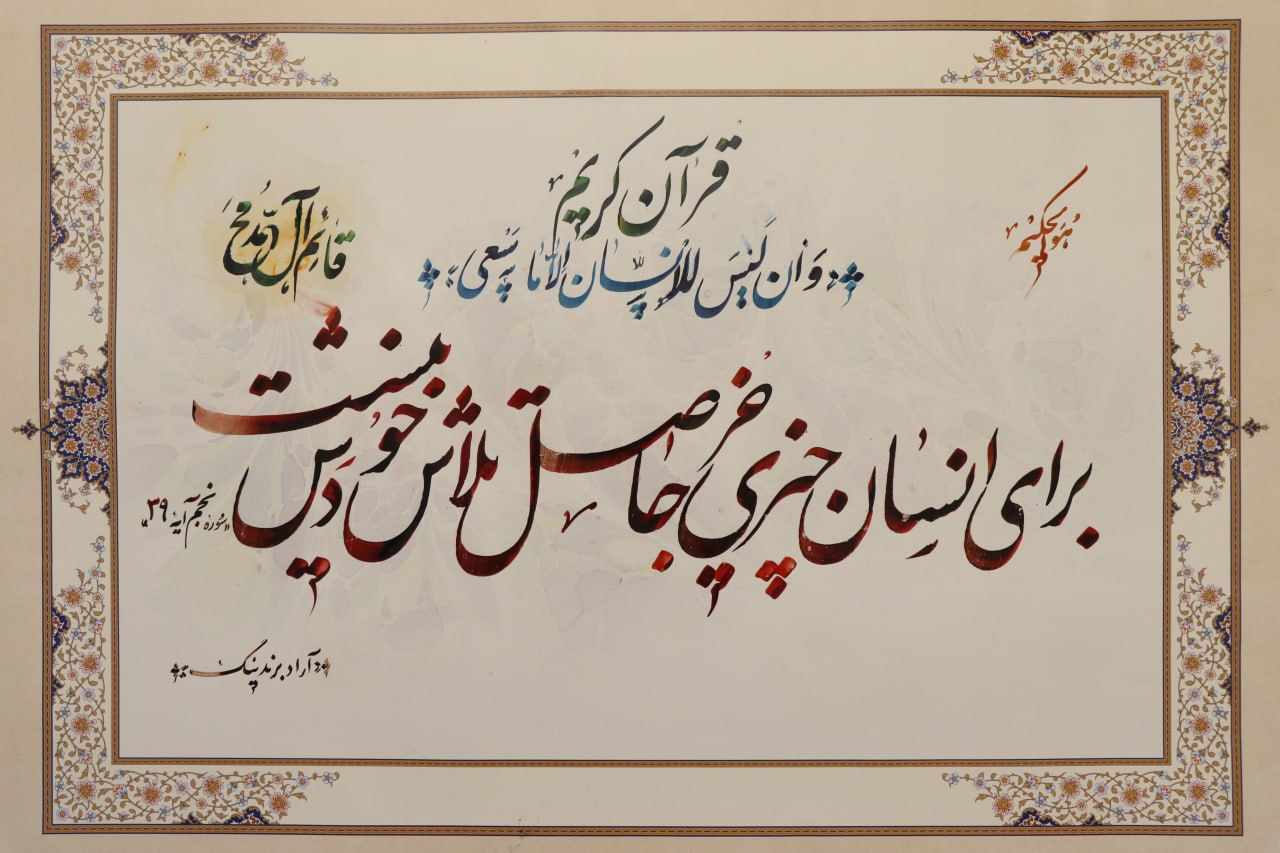 هو الحکیم
قرآن کریم
قائم آل محمد
«وَ أن لَیسَ لِلإنسان إلّا ما سَعی»
برای انسان چیزی جز حاصل تلاش خودش نیست
«سوره نجم آیه ۳۹»
آراد برندینگ